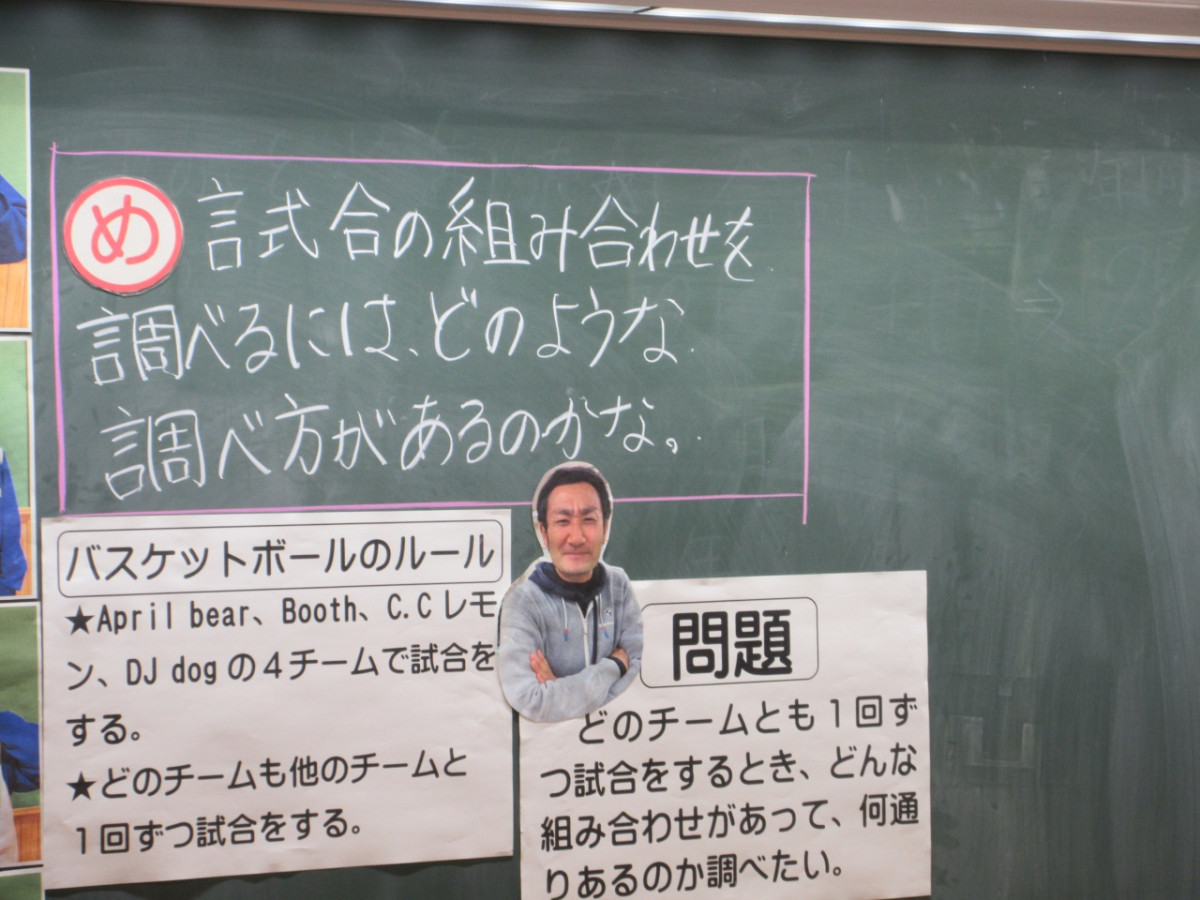 め 試合の組み合わせを
調べるには、どのような
調べ方があるのかな。
バスケットボールのルール
★April bear、Booth、C.Cレモ
ン、DJ dogの4チームで試合を
する。
★どのチームも他のチームと
1回ずつ試合をする。
問題
どのチームとも1回ず
つ試合をするとき、どんな
組み合わせがあって、何通
りあるのか調べたい。